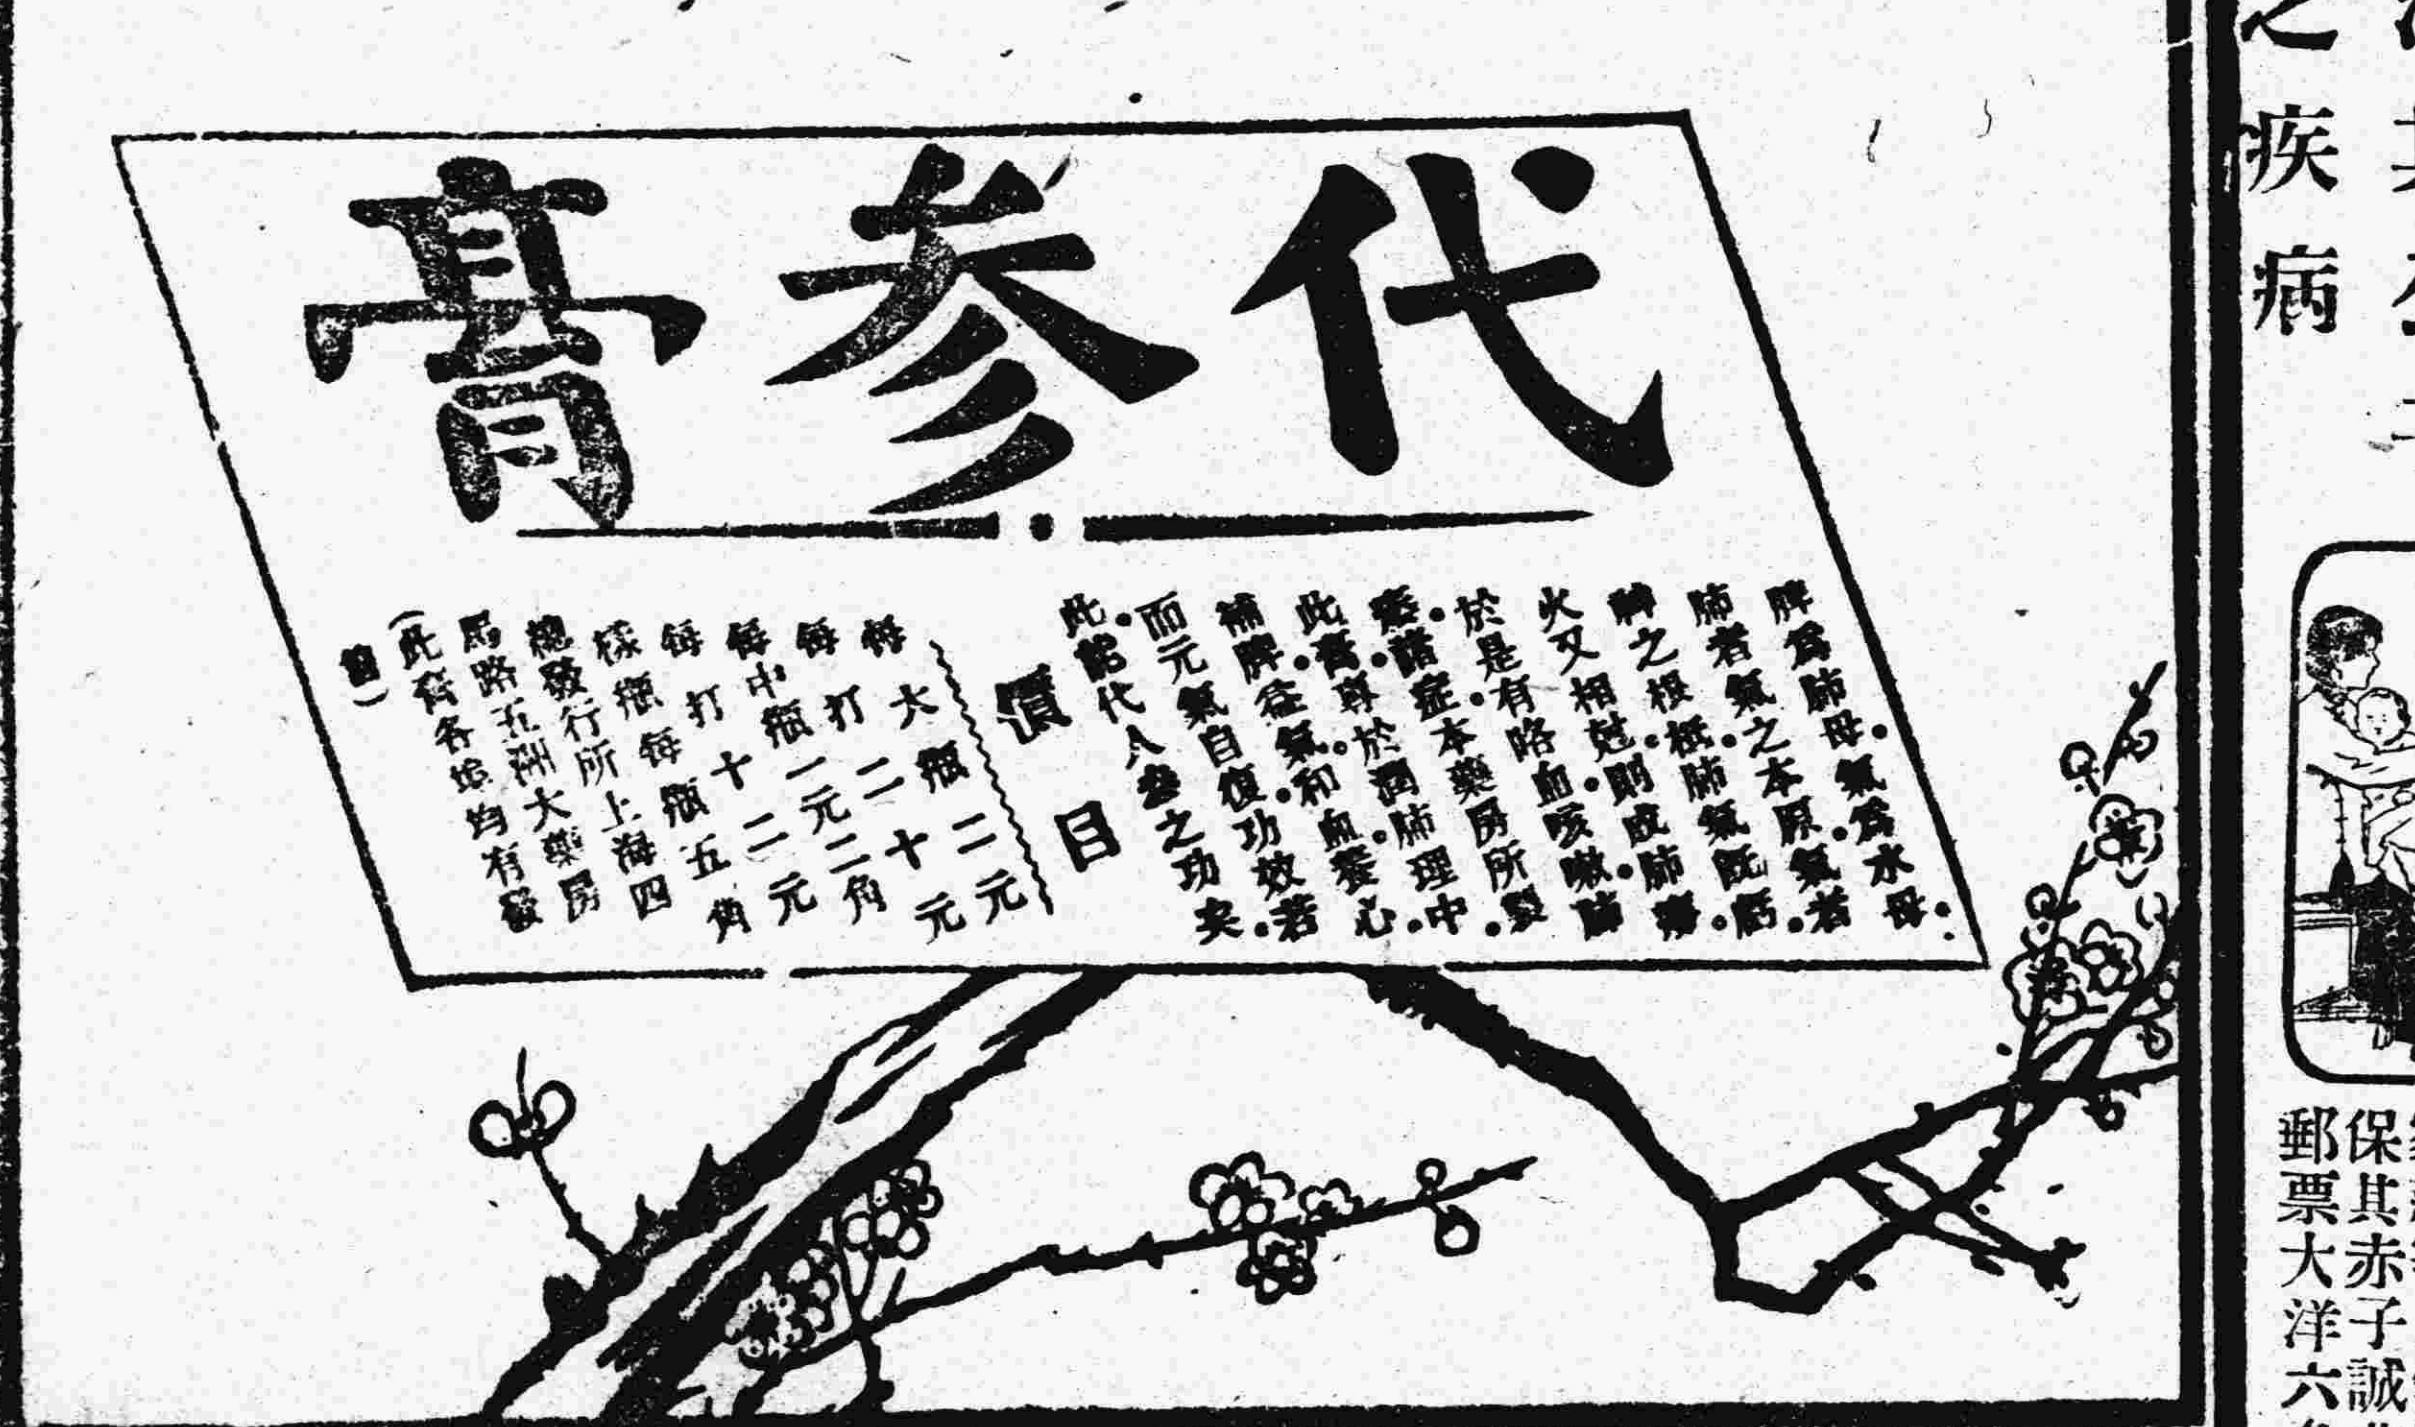 代参膏
脾爲肺母氣爲水母
肺者氣之本原氣者
神之根柢肺氣既
火又相尅則成肺癆
於是有咯血咳嗽肺
痿諸症本藥房所製
此膏專於潤肺理中
補脾益氣和血養心
而元氣自復功效若
此認代人參之功矣
價目
每大瓶二元
每打二十元
每中瓶一元二角
每打十二元
樣瓶每瓶五角
總發行所上海四
馬路五洲大藥房
(此膏各埠均有發
售)
之疾病
保其赤子誠
郵票大洋六